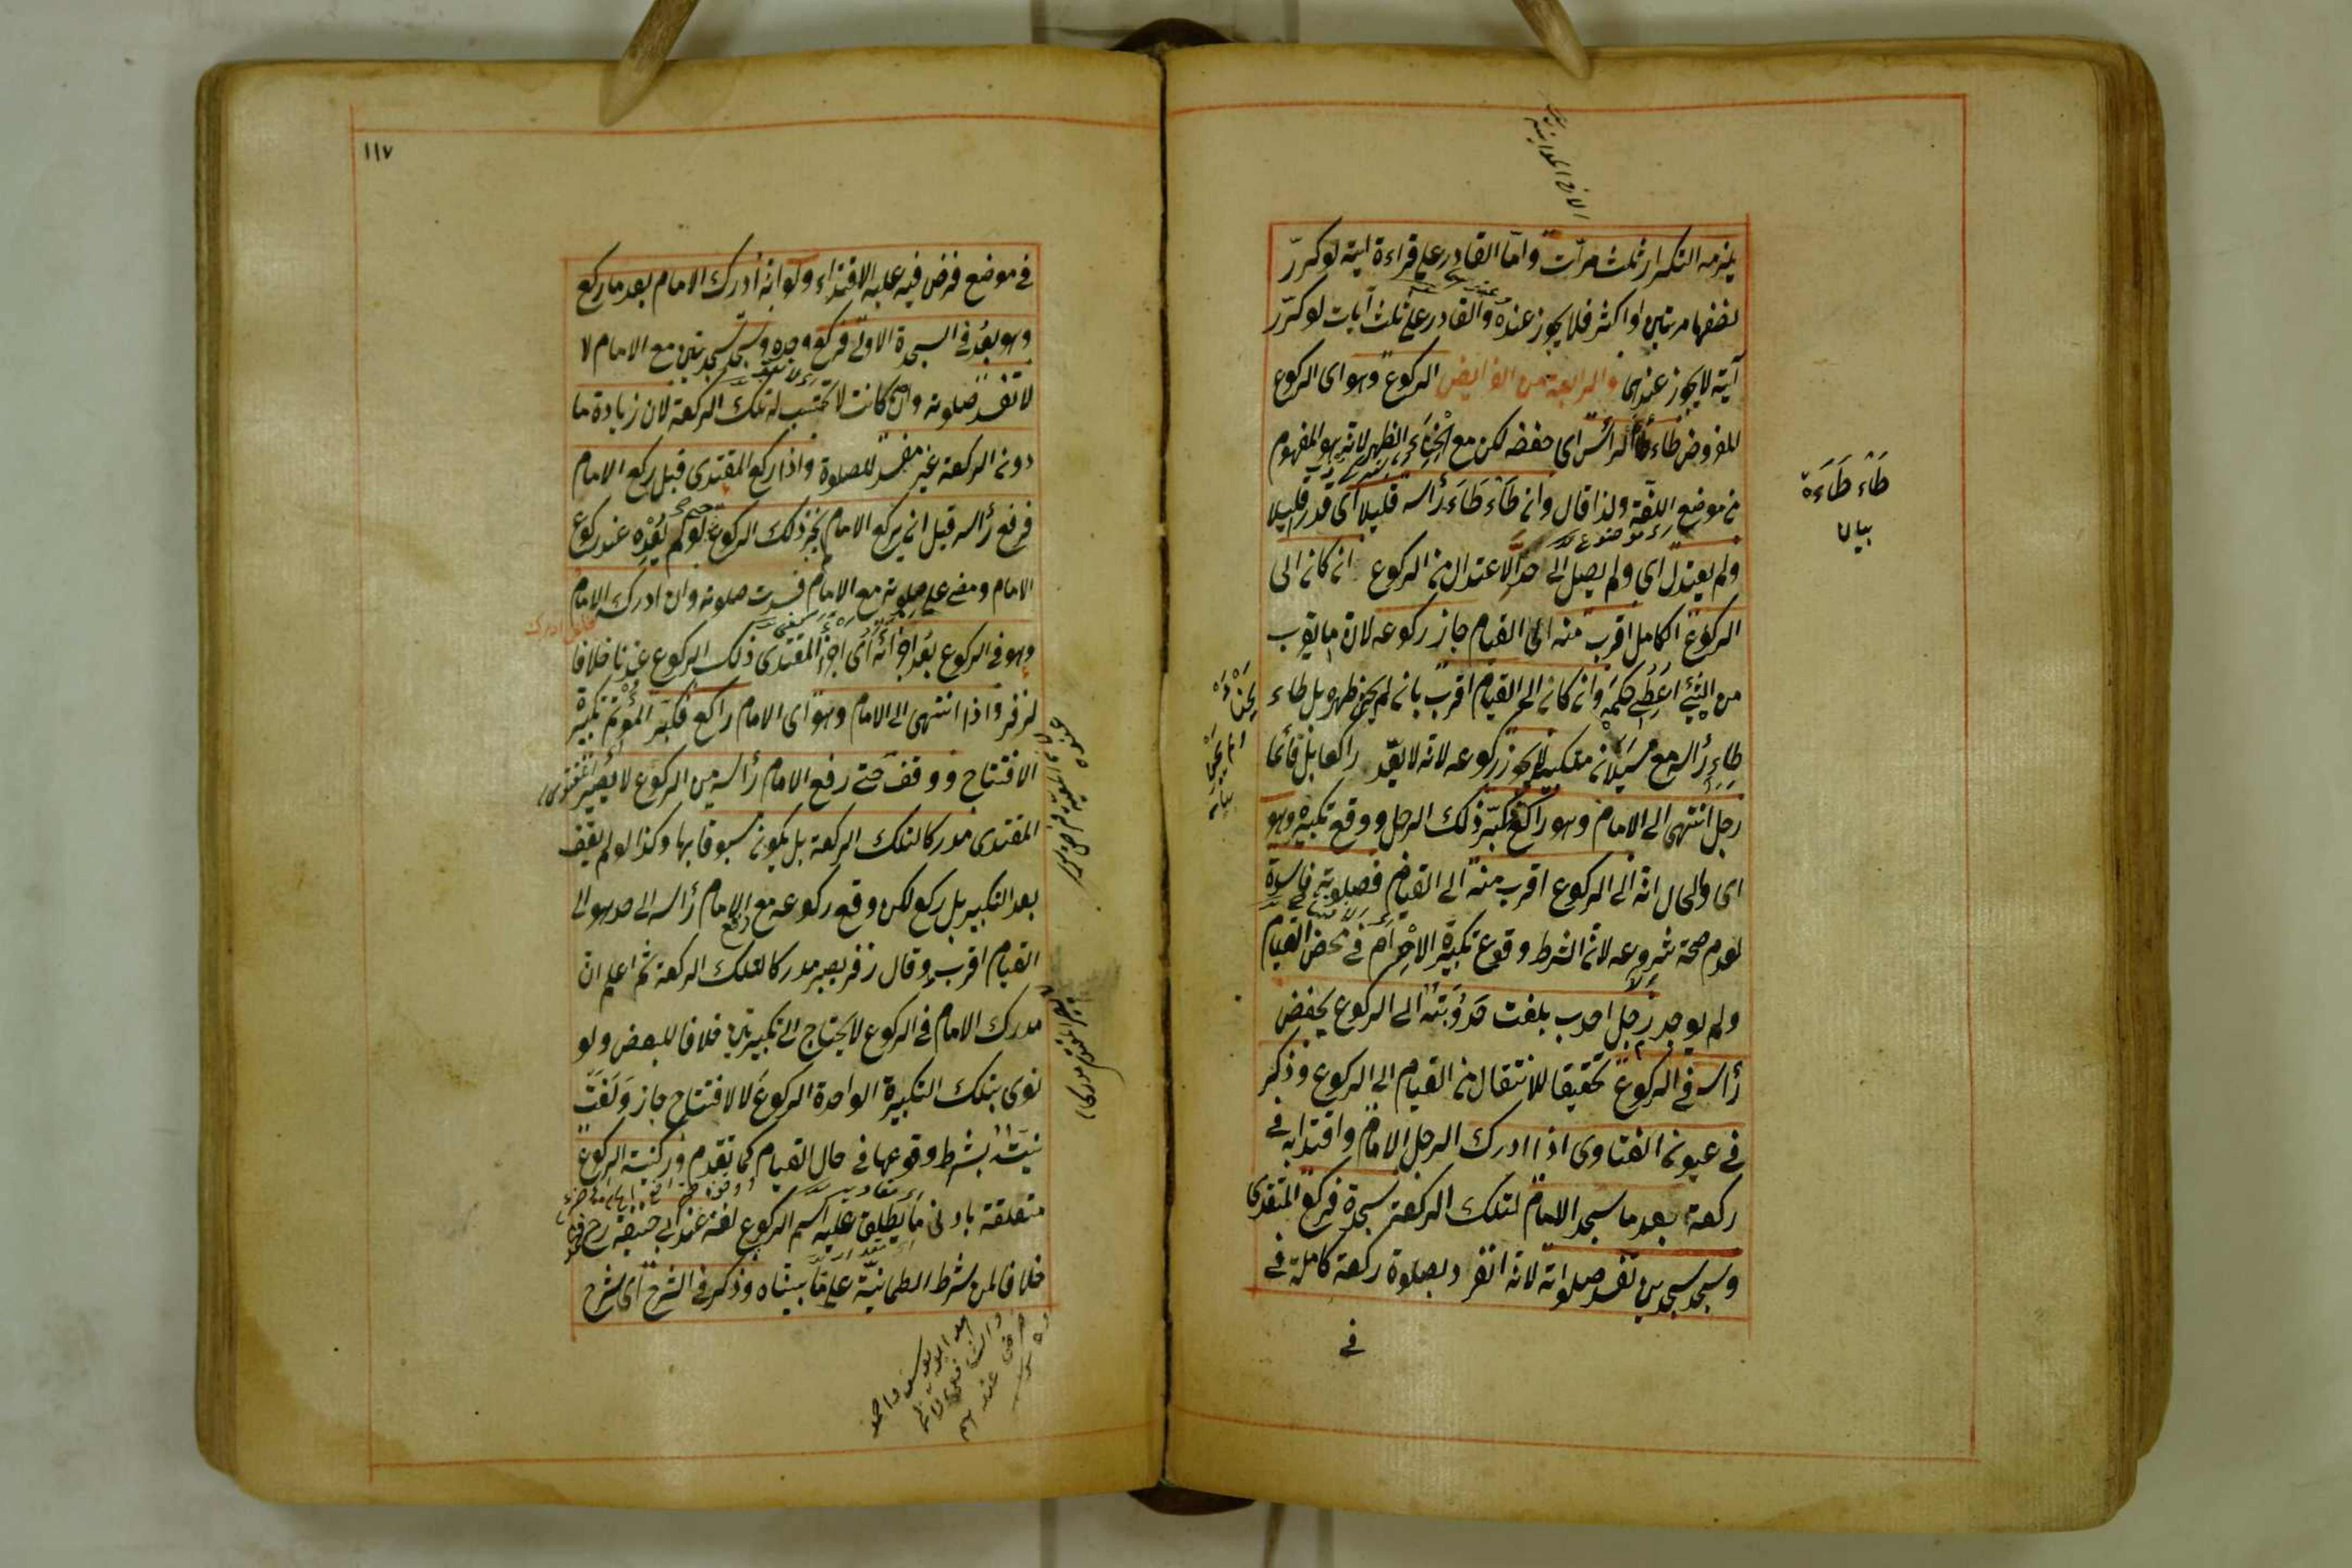 يلزمه التكرار ثلث مرات واما القادر على قراءة اية لو كرر
نصفها مرتين او اكثر فلا يجوز عنده والقادر على ثلث آيات لو كرر
آية لا يجوز عندهما والرابعة من الفرايض الركوع وهو اى الركوع
المفروض طاء طاء الرأس اى خفضه لكن مع انحناء الظهر لانه هو المفهوم
من موضع اللغة ولذا قال وان طاء طاء رأسه قليلا اى قدر قليلا
ولم يعتدل اى ولم يصل الى حد الاعتدال من الركوع ان كان الى
الركوع الكامل اقرب منه الى القيام جاز ركوعه لان ما يقرب
من الشئ اعطى حكمه وان كان الى القيام اقرب بان لم يحن ظهره بل طاء
طاء رأسه مع ميلان منكبيه لا يجوز ركوعه لانه لا يعد راكعا بل قائما
رجل انتهى الى الامام وهو راكع فكبر ذلك الرجل ووقع تكبيره وهو
اى والحال انه الى الركوع اقرب منه الى القيام فصلوته فاسدة
لعدم صحة شروعه لان الشرط وقوع تكبيرة الاحرام فى محض القيام
ولم يوجد رجل احدب بلغت حدوبته الى الركوع يخفض
رأسه فى الركوع تحقيقا للانتقال من القيام الى الركوع وذكر
فى عيون الفتاوى اذا ادرك الرجل الامام واقتدا به فى
ركعة بعد ما سجد الامام لتلك الركعة سجدة فركع المقتدى
وسجد سجدتين تفسد صلواته لانه انفرد بصلوة ركعة كاملة فى
فى
طاء طاءة
بيالا
١١٧
فى موضع فرض فيه عليه الاقتداء ولو انه ادرك الامام بعد ما ركع
وهو بعد فى السجدة الاولى فركع وحده وسجد سجدتين مع الامام لا
لا تفسد صلوته وان كانت لا تحتسب له تلك الركعة لان زيادة ما
دون الركعة غير مفسد للصلوة واذا ركع المقتدى قبل ركع الامام
فرفع رأسه قبل ان يركع الامام لم يجز ذلك الركوع لو لم يعده عند ركوع
الامام ومضى على صلوته مع الامام فسدت صلوته وان ادركه الامام
وهو فى الركوع بعد اجزأه اى اجزأ المقتدى ذلك الركوع عندنا خلافا
لزفر واذا انتهى الى الامام وهو اى الامام راكع فكبر المؤتم تكبيرة
الافتتاح ووقف حتى رفع الامام رأسه من الركوع لا يصير
المقتدى مدركا لتلك الركعة بل يكون مسبوقا بها وكذا لو لم يقف
بعد التكبير بل ركع لكن وقع ركوعه مع رفع الامام رأسه الى حد هو الى
القيام اقرب وقال زفر يصير مدركا لتلك الركعة ثم اعلم ان
مدرك الامام فى الركوع لا يحتاج الى تكبيرتين خلافا للبعض ولو
نوى بتلك التكبيرة الواحدة الركوع لا الافتتاح جاز ولغت
نيته بشرط وقوعها فى حال القيام كما تقدم وركنية الركوع
متعلقة بادنى ما يطلق عليه اسم الركوع لغة عند ابى حنيفة رح
خلافا لمن شرط الطمانية على ما بيناه وذكر فى الشرح اى شرح